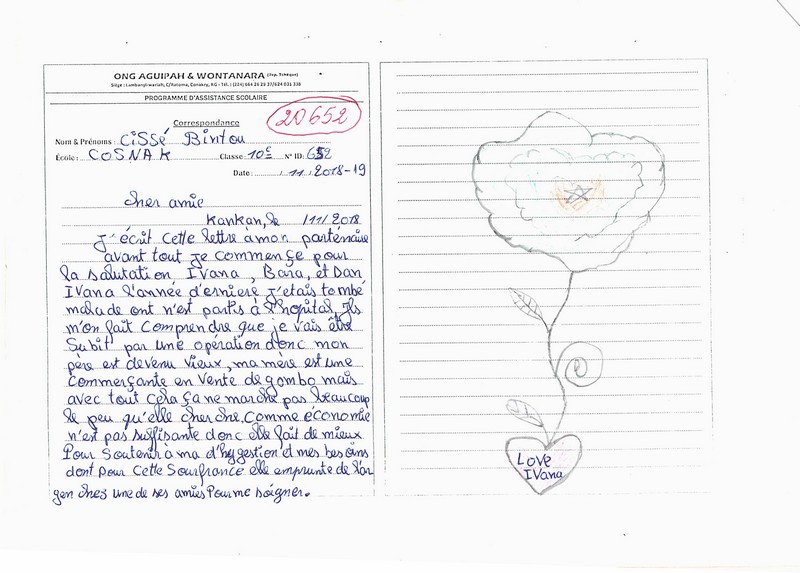 ONG AGUIPAH & WONTANARA (Rep. Tchèque)
Siège : Lambanyi-wariah, C/Ratoma, Conakry, RG - Tél. : (224) 664 26 25 37/624 031 338
PROGRAMME D'ASSISTANCE SCOLAIRE
20652
Correspondance
Nom & Prénoms : Cissé Bintou
École : COSNAK Classe 10e N° ID: 652
Date : 11 / 2018-19
cher amie
Kankan, le /11/2018
J'écrit cette lettre à mon partenaire
avant tout je commençe pour
la salutation IVana, Bara, et Dan
IVana l'année d'erniere j'etais tombé
malade ont n'est partis à l'hopital, Ils
m'on fait comprendre que je vais être
Subit par une opération donc mon
père est devenu vieux, ma mère est une
commerçante en vente de gombo mais
avec tout cela ça ne marche pas beaucoup
le peu qu'elle cherche comme économie
n'est pas suffisante donc elle fait de mieux
Pour Soutenir a ma d'hygestion et mes besoins
dont pour cette Sourfrance elle emprunte de l'ar
gen chez une de ses amies Pour me soigner.
Love
IVana